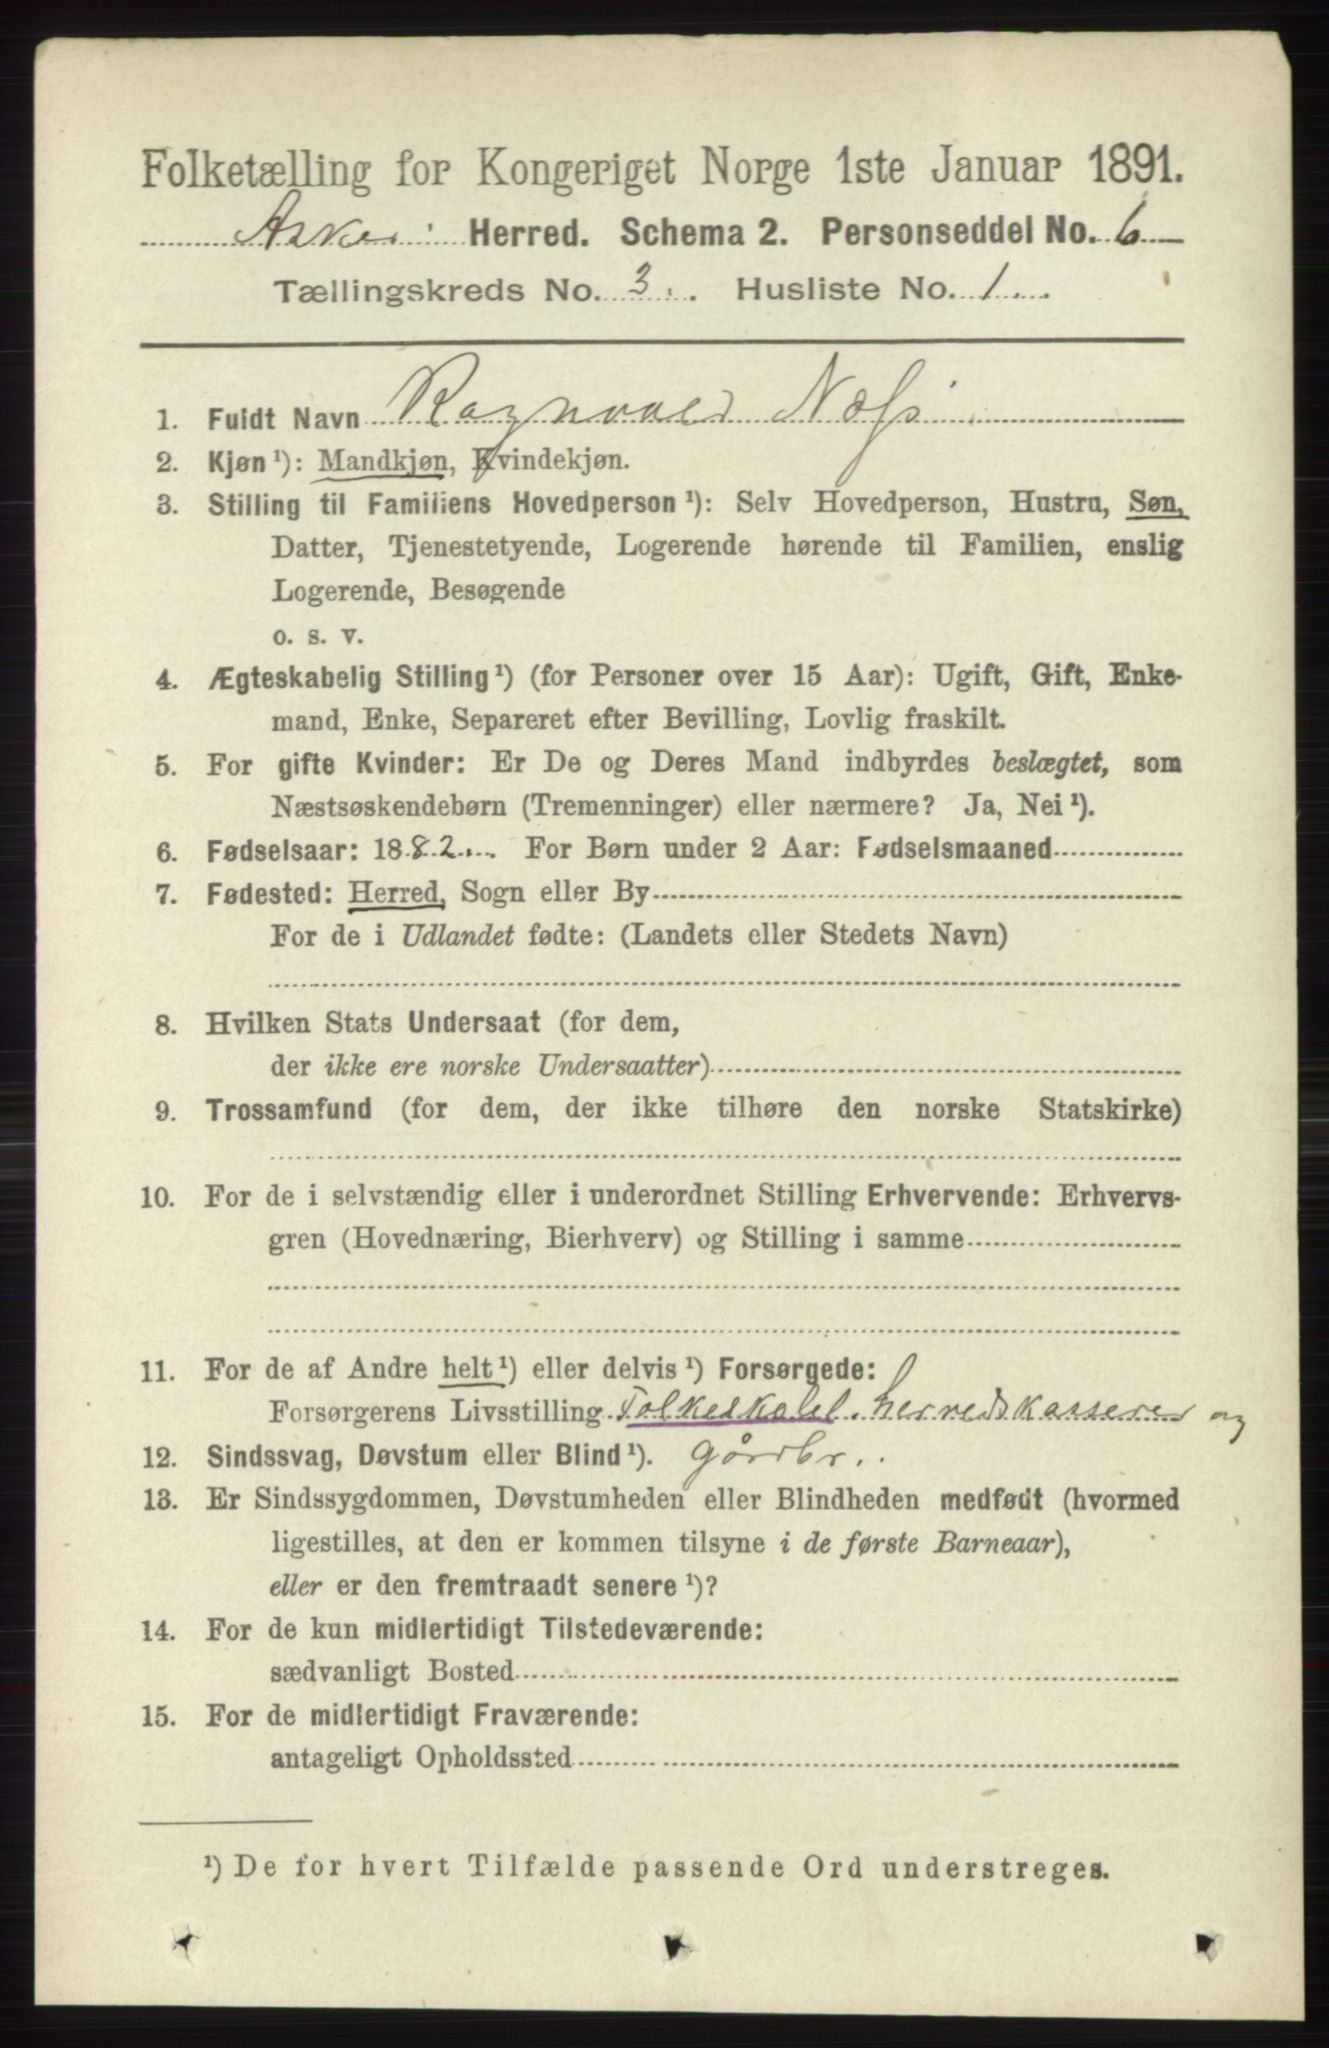 Folketælling for Kongeriget Norge 1ste Januar 1891.
Asker Herred. Schema 2. Personseddel No. 6
Tællingskreds No. 3. Husliste No. 1
1. Fuldt Navn Ragnvald Næss
2. Kjøn ¹): Mandkjøn, Kvindekjøn.
3. Stilling til Familiens Hovedperson ¹): Selv Hovedperson, Hustru, Søn,
Datter, Tjenestetyende, Logerende hørende til Familien, enslig
Logerende, Besøgende
o. s. v.
4. Ægteskabelig Stilling ¹) (for Personer over 15 Aar): Ugift, Gift, Enke-
mand, Enke, Separeret efter Bevilling, Lovlig fraskilt.
5. For gifte Kvinder: Er De og Deres Mand indbyrdes beslægtet, som
Næstsøskendebørn (Tremenninger) eller nærmere? Ja, Nei ¹).
6. Fødselsaar: 1882. For Børn under 2 Aar: Fødselsmaaned
7. Fødested: Herred, Sogn eller By
For de i Udlandet fødte: (Landets eller Stedets Navn)
8. Hvilken Stats Undersaat (for dem,
der ikke ere norske Undersaatter)
9. Trossamfund (for dem, der ikke tilhøre den norske Statskirke)
10. For de i selvstændig eller i underordnet Stilling Erhvervende: Erhvervs-
gren (Hovednæring, Bierhverv) og Stilling i samme
11. For de af Andre helt ¹) eller delvis ¹) Forsørgede:
Forsørgerens Livsstilling Folkeskolel. herredskasserer og
12. Sindssvag, Døvstum eller Blind ¹). gårdbr.
13. Er Sindssygdommen, Døvstumheden eller Blindheden medfødt (hvormed
ligestilles, at den er kommen tilsyne i de første Barneaar),
eller er den fremtraadt senere ¹)?
14. For de kun midlertidigt Tilstedeværende:
sædvanligt Bosted
15. For de midlertidigt Fraværende:
antageligt Opholdssted
¹) De for hvert Tilfælde passende Ord understreges.